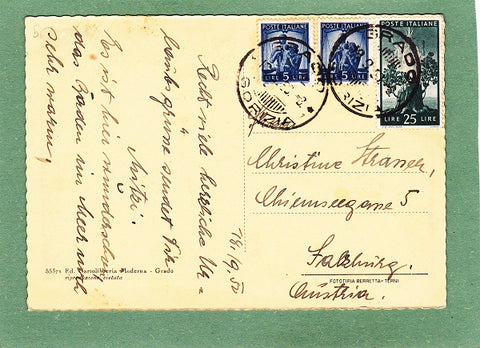 18./9. 50
Recht viele herzliche Ur-
laubsgrüsse sendet Dir
Mitzi.
Es ist hier wunderschön,
das Baden im Meer noch
sehr warm,
POSTE ITALIANE
LIRE 5 LIRE
POSTE ITALIANE
LIRE 5 LIRE
POSTE ITALIANE
LIRE 25 LIRE
GRADO
GORIZIA
Christine Strasser,
Chiemseegasse 5
Salzburg.
Austria.
FOTOTIPIA BERRETTA - TERNI
35571 Ed. Cartolibreria Moderna - Grado
riproduzione vietata